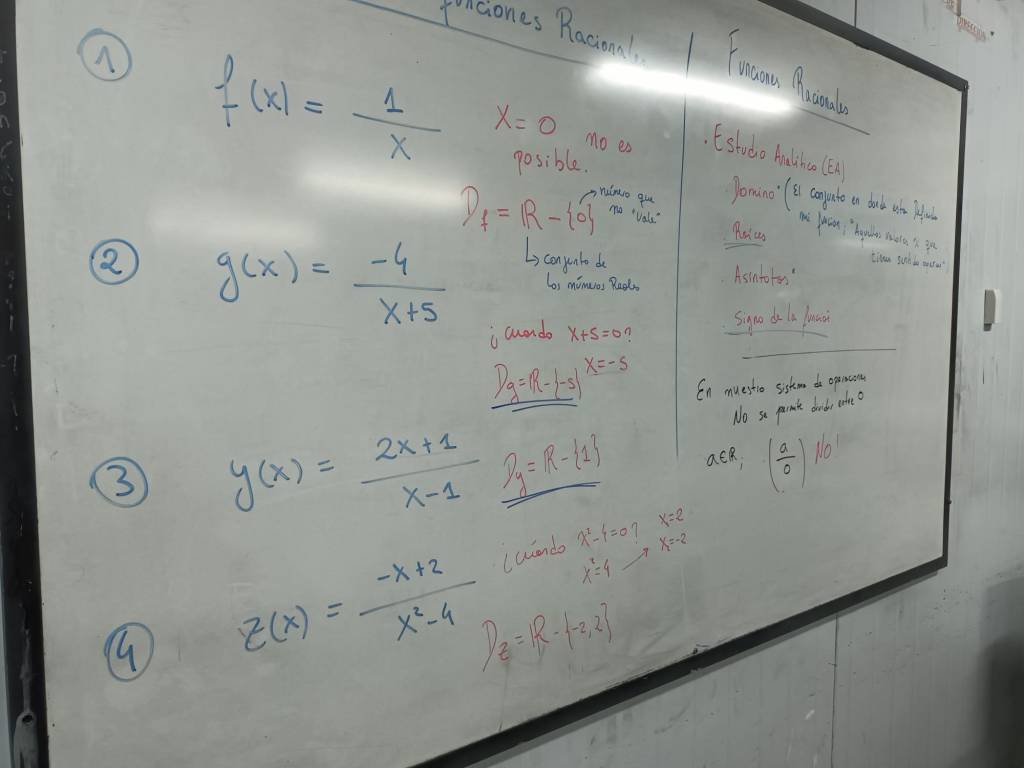 funciones Racionales
①
f(x) = 1/x
X = 0 no es
posible.
D_f = ℝ - {0}
número que
no "vale"
conjunto de
los números Reales
②
g(x) = -4/(x+5)
¿cuando x+5=0?
X=-5
D_g = ℝ - {-5}
③
y(x) = (2x+1)/(x-1)
D_y = ℝ - {1}
④
z(x) = (-x+2)/(x²-4)
¿cuándo x²-4=0?
x²=4
x=2
x=-2
D_z = ℝ - {-2, 2}
Funciones Racionales
. Estudio Analítico (EA)
. Dominio* (El conjunto en donde esta definida
mi funcion, "Aquellos valores si que
tienen sentido operar")
. Raíces
. Asíntotas*
. Signo de la función
En nuestro sistema de operaciones
No se permite dividir entre 0
a∈ℝ; (a/0) NO!
DIRECCIÓN